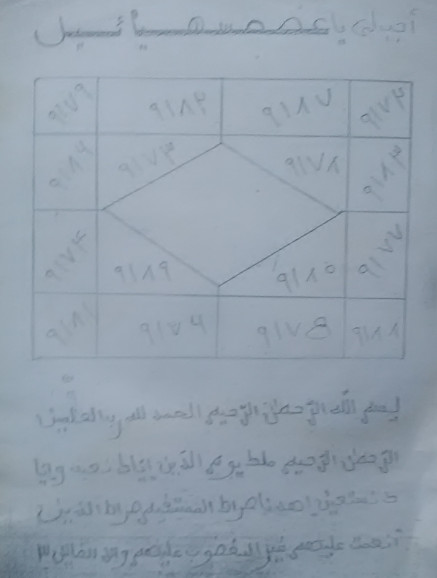 أجب لي يا
٩١٧٢ ٩١٨٧ ٩١٨٢ ٩١٧٩
٩١٨٣ ٩١٧٨ ٩١٧٣ ٩١٨٦
٩١٧٧ ٩١٨٠ ٩١٨٩ ٩١٧٤
٩١٨٨ ٩١٧٥ ٩١٧٦ ٩١٨١
بسم الله الرّحمٰن الرّحيم الحمد لله رب العلمين
الرّحمٰن الرّحيم ملك يوم الدّين إيّاك نعبد وإيا
ك نستعين إهدنا صراط المستقيم صراط الذين
أنعمت عليهم غير المغضوب عليهم ولا الضالين ٣